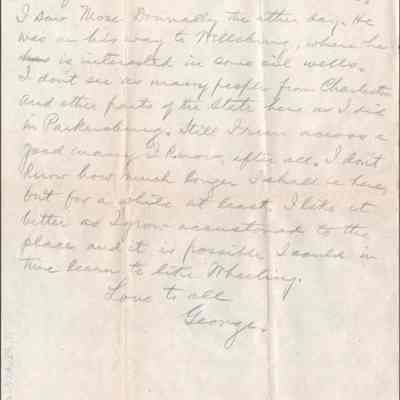 I saw Mose Donnally the other day. He
was on his way to Wellsburg, where he
is interested in some oil wells.
I don't see as many people from Charleston
and other parts of the State here as I did
in Parkersburg. Still I run across a
good many I know, after all. I don't
know how much longer I shall be here,
but for a while at least. I like it
better as I grow accustomed to the
place and it is possible I could in
time learn to like Wheeling.
Love to all
George.